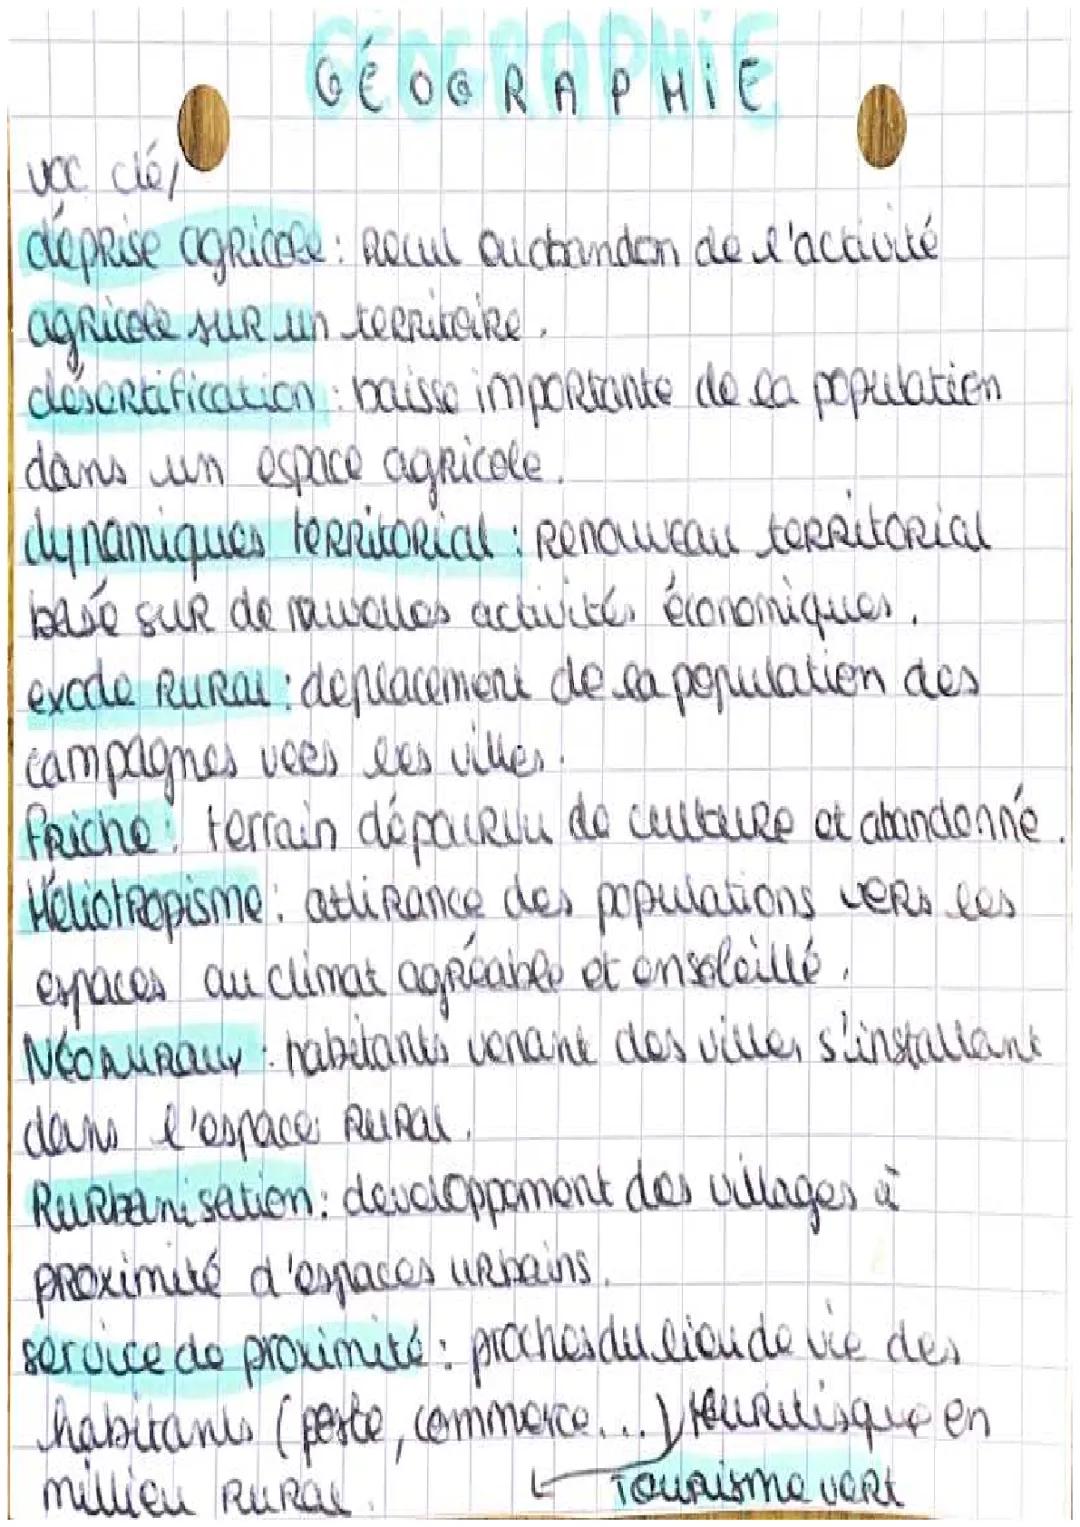 GÉOGRAPHIE
voc clé/
déprise agricole : Recul ou abandon de l'activité
agricole sur un territoire.
désertification : baisse importante de la population
dans un espace agricole.
dynamiques territorial : Renouveau territorial
basé sur de nouvelles activités économiques.
exode rural : déplacement de la population des
campagnes vers les villes.
friche : terrain dépourvu de culture et abandonné.
Héliotropisme : attirance des populations vers les
espaces au climat agréable et ensoleillé.
Néoruraux : habitants venant des villes s'installant
dans l'espace rural.
Rurbanisation : developpement des villages à
proximité d'espaces urbains.
service de proximité : proches du lieu de vie des
habitants (poste, commerce...) en
millieu rural.
Tourisme vert